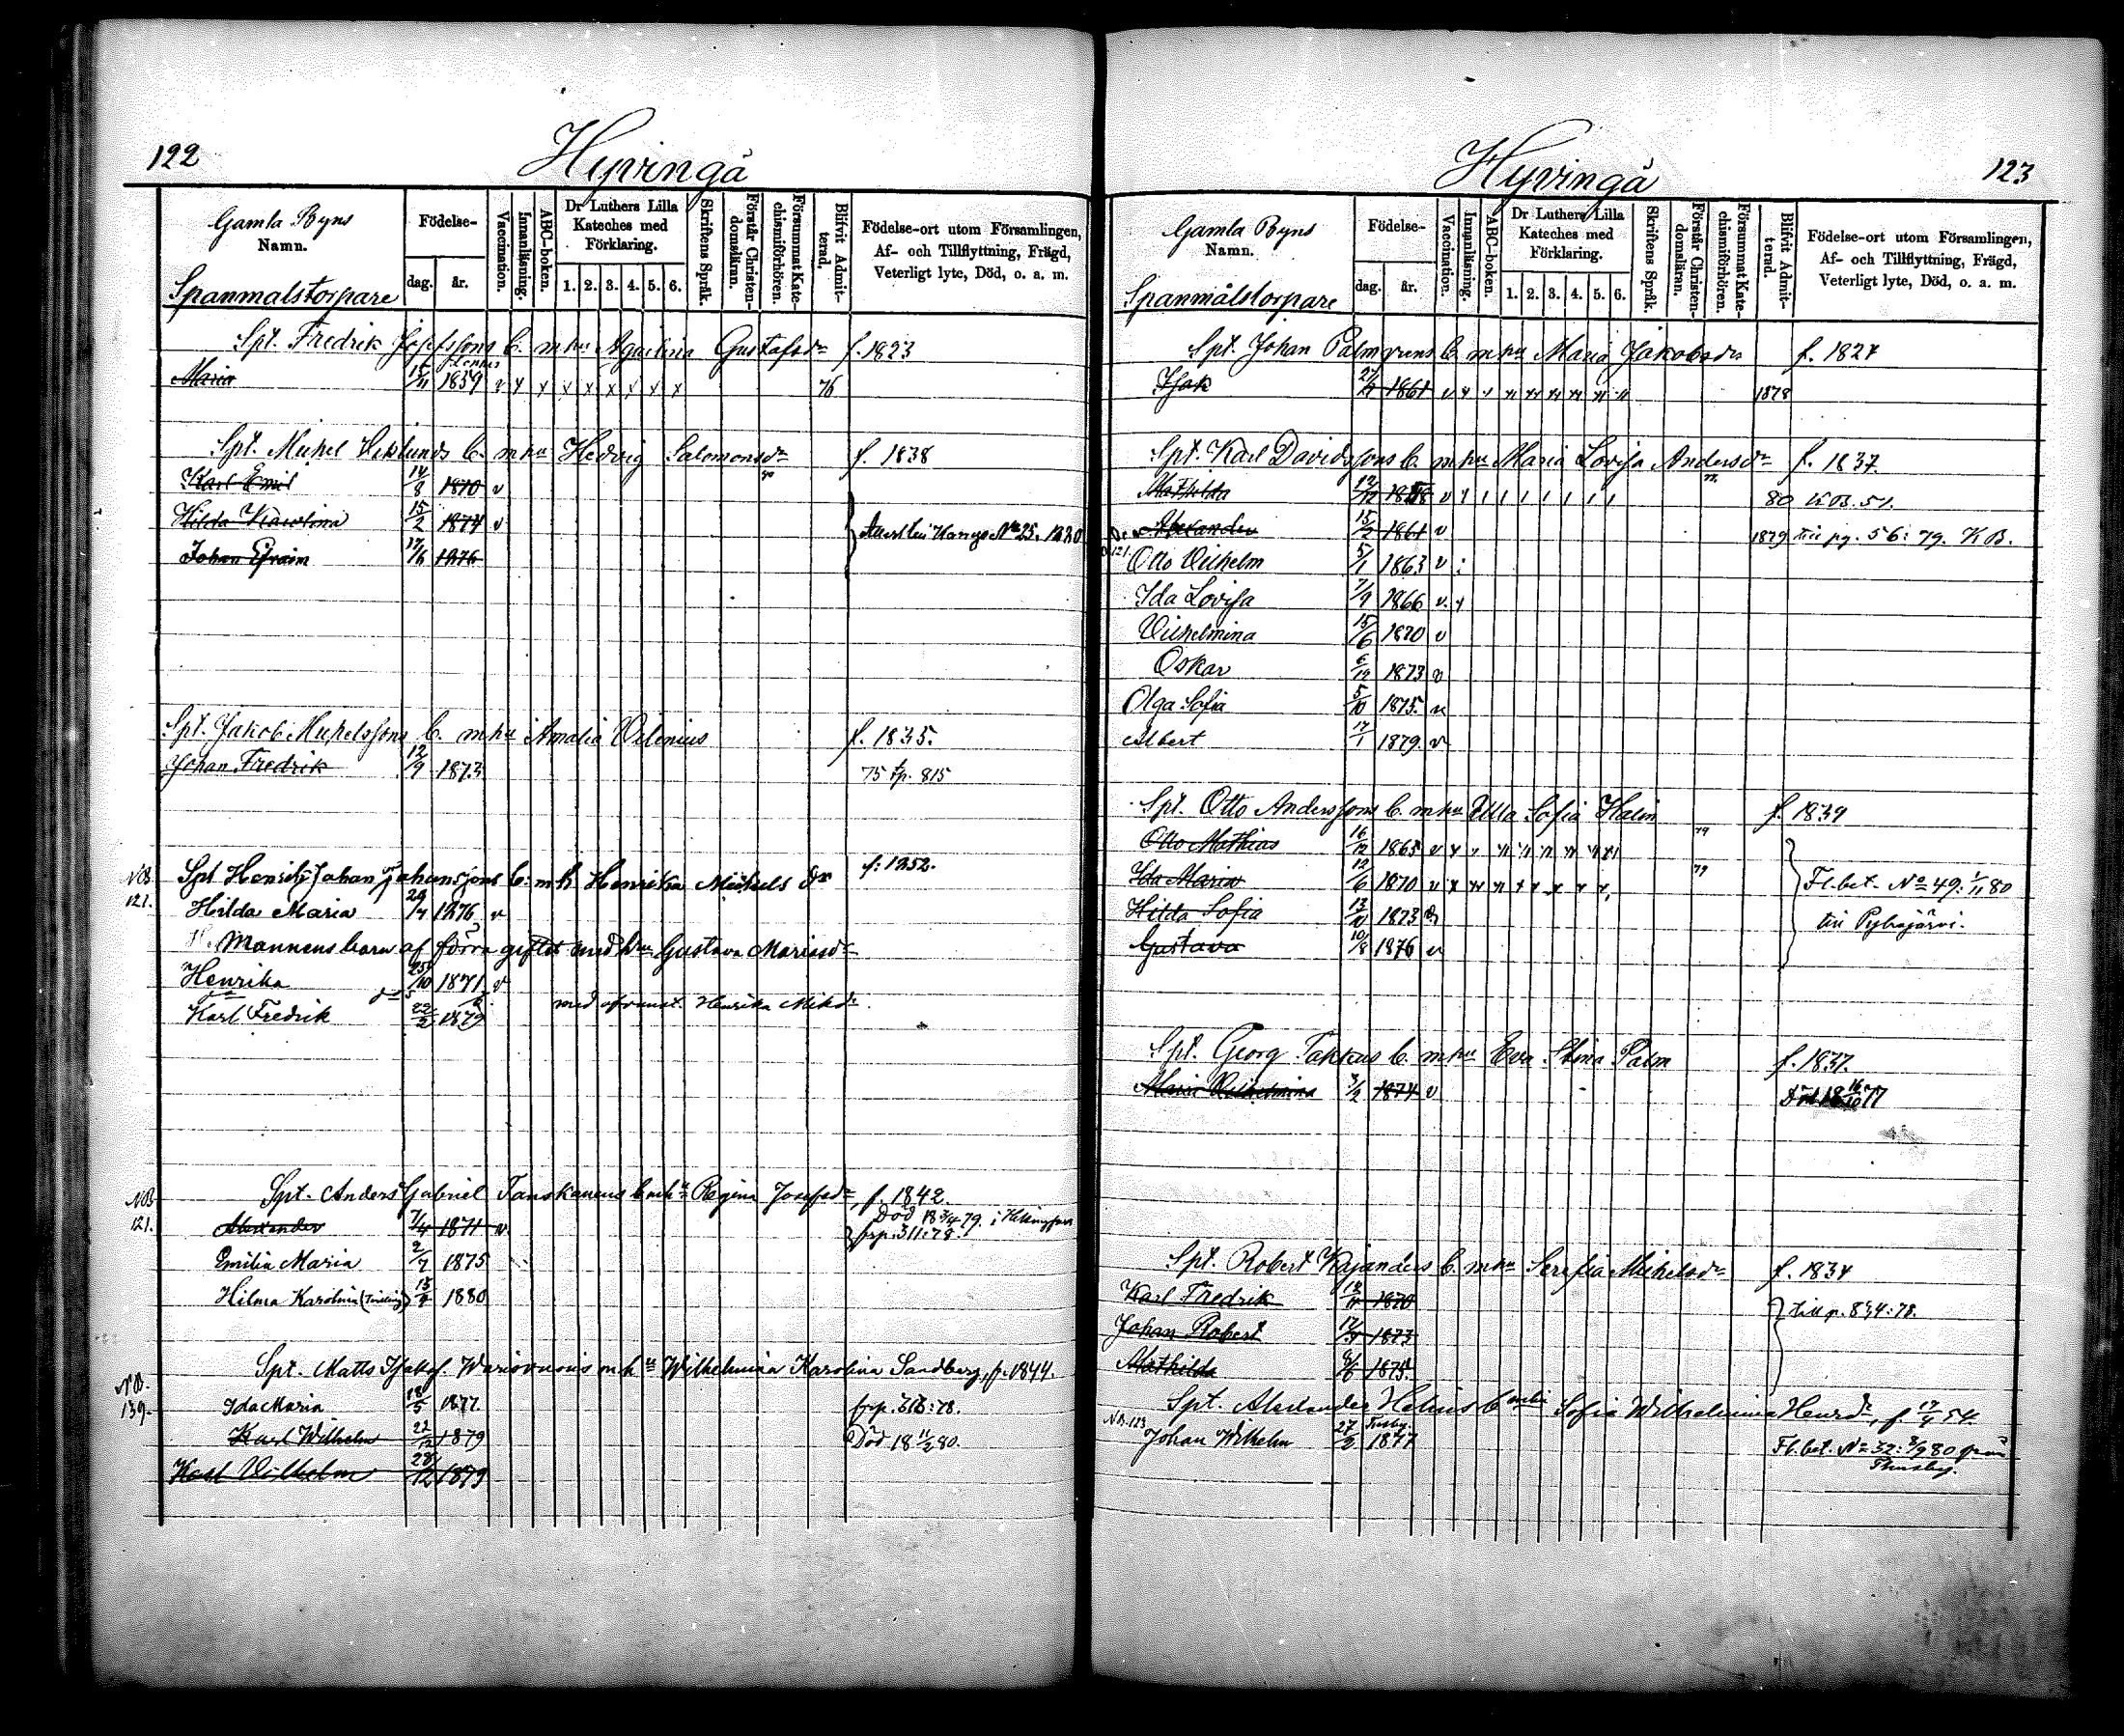 122
Hyvingå
Gamla Byns
Namn.
Födelse-
dag.
år.
Vaccination.
Innanläsning.
ABC-boken.
Dr Luthers Lilla
Kateches med
Förklaring.
1. 2. 3. 4. 5. 6.
Skriftens Språk.
Förstår Christen-
domsläran.
Försummat Kate-
chismiförhören.
Blifvit Admit-
terad,
Födelse-ort utom Församlingen,
Af- och Tillflyttning, Frägd,
Veterligt lyte, Död, o. a. m.
Spanmalstorpare
Spt. Fredrik b. m hu Gustafsdr f. 1823
Maria 15/11 1859 v x x x x x x x x 76
Spt. Mickel b. m hu Hedvig Salomonsdr f. 1838
Karl Emil 14/8 1870 v
Hilda Karolina 15/2 1874 v N:o 25. 1880
Johan Efraim 17/6 1876
Spt. Jakob Mickelssons b. m hu Amalia f. 1835.
Johan Fredrik 12/9 1873 75 fp. 815
NB 121.
Spt Henrik Johan Johanssons b. m h Henrika Mickels dr f. 1852.
Hilda Maria 29/7 1876 v
Mannens barn af förra giftet med hu Gustava Mariasdr
Henrika 25/10 1871 v
Karl Fredrik 22/2 1879 med Henrika Mikdr.
NB 121.
Spt. Anders Gabriel Tanskanens b mhu Regina Josefsdr, f. 1842.
Alexander 7/4 1871 v. Död 18 3/4 79. i Helsingfors
frp. 311:78.
Emilia Maria 2/7 1875
Hilma Karolina (Tvilling) 1880
NB. 139.
Spt. Matts m. hu Wilhelmina Karolina Sandberg, f. 1844.
Ida Maria 18/5 1877 frp. 313:78.
Karl Wilhelm 22/12 1879 Död 18 11/2 80.
Karl Vilhelm 1879
123
Hyvingå
Gamla Byns
Namn.
Födelse-
dag.
år.
Vaccination.
Innanläsning.
ABC-boken.
Dr Luthers Lilla
Kateches med
Förklaring.
1. 2. 3. 4. 5. 6.
Skriftens Språk.
Förstår Christen-
domsläran.
Försummat Kate-
chismiförhören.
Blifvit Admit-
terad.
Födelse-ort utom Församlingen,
Af- och Tillflyttning, Frägd,
Veterligt lyte, Död, o. a. m.
Spanmålstorpare
Spt. Johan Palmgrens b. m hu Maria Jakobsdr f. 1827
Isak 1861 v 1878
Spt. Karl Davidssons b. m hu Maria Lovisa Andersdr f. 1837.
Mathilda 12/12 1858 v 80 KB. 51.
Alexander 15/2 1861 v 1879 till pg. 56: 79. KB.
Otto Vilhelm 5/1 1863 v
Ida Lovisa 7/9 1866 v.
Vilhelmina 15/6 1870 v
Oskar 6/12 1873 v
Olga Sofia 5/10 1875. v
Albert 17/1 1879 v
Spt. Otto Anderssons b. m hu Ulla Sofia Halin f. 1839
Otto Mathias 16/12 1865 v 79
Ida Maria 12/6 1870 v 79 Fl. bet. N:o 49: 1/11 80
Hilda Sofia 1873 v till Pyhäjärvi.
Gustava 10/8 1876 v
Spt. Georg Takkus b. m hu Eva Stina Palm f. 1837.
Maria Vilhelmina 3/2 1874 v Död 18 16/10 77
Spt. Robert Kajanders b. m hu Serafia Mickelsdr f. 1834
Karl Fredrik 1870 till p. 834:78.
Johan Robert 1873
Mathilda 1875.
Spt. Alexander Helins b mhu Sofia Wilhelmina Henrdr, f 17/4 54.
NB. 123
Johan Wilhelm 27/2 1877 Fl. bet. N:o 32: 8/9 80 från
Thusby.